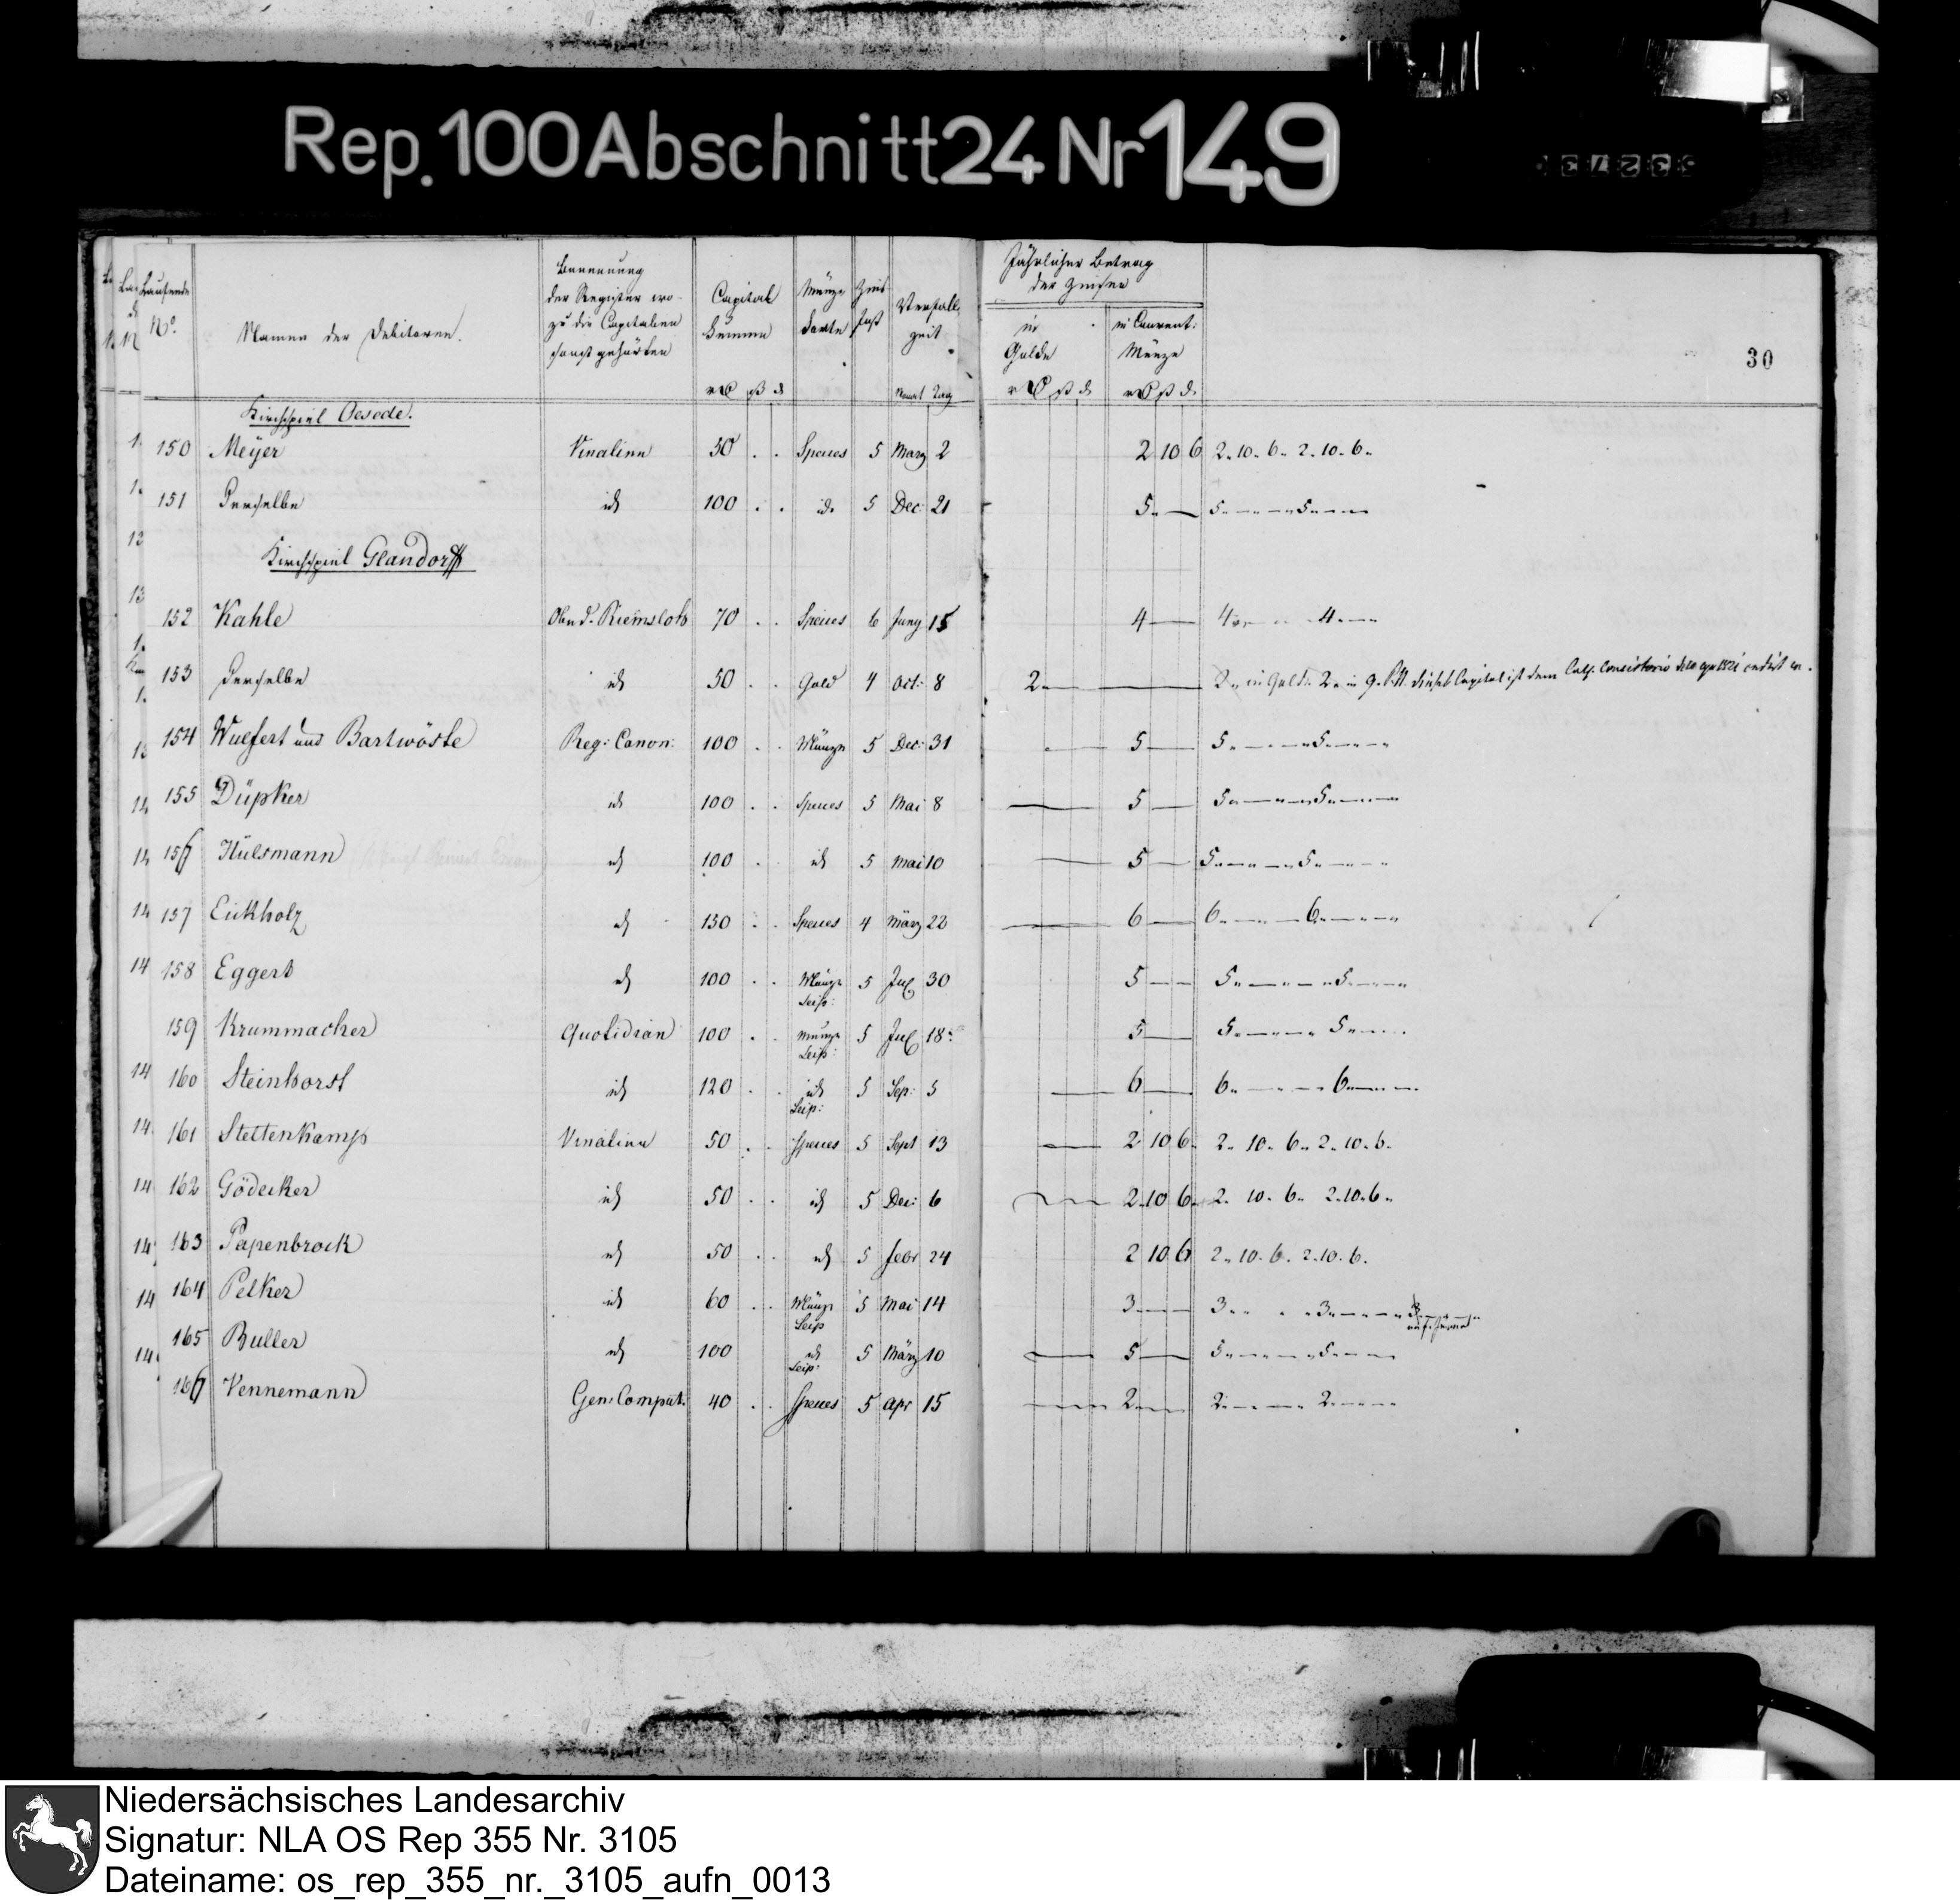 Rep. 100 Abschnitt 24 Nr 149
30
Laufende No.
Namen der Debitoren.
Benennung der Register wo-
zu die Capitalien
sonst gehörten
Capital Summe
Münz Sorte
Zins fuß
Verfall zeit
Monat Tag
Jährlicher Betrag
der Zinsen
in Golde
in Courent: Münze
Kirchspiel Oesede.
150 Meÿer Vinalien 50 . . Specues 5 März 2 2 10 6 2. 10. 6. 2. 10. 6.
151 Derselbe id 100 . . id. 5 Dec: 21 5 5 5
Kirchspiel Glandorff
152 Kahle Riemsloh 70 . . Specues 6 Juny 15 4 4 4
153 Derselbe id 50 . . Gold 4 Oct: 8 2 2 in Gold. 2 in dieses Capital ist dem Consistorio
154 Wulfert und Bartwöste Reg: Canon: 100 . . Münze 5 Dec: 31 5 5 5
155 Düpker id 100 . . Specues 5 Mai 8 5 5 5
156 Hülsmann id 100 . id 5 Mai 10 5 5 5
157 Eickholz id 130 . . Specues 4 März 22 6 6 6
158 Eggert id 100 . . Münze Leip: 5 30 5 5 5
159 Krummacher Quotidian 100 . . Münze Leip: 5 18 5 5 5
160 Steinhorst id 120 . . id Leip: 5 Sep: 5 6 6 6
161 Stettenkamp Vinalien 50 . . Specues 5 Sept 13 2 10 6 2. 10. 6. 2. 10. 6.
162 Gödecker id 50 . . id 5 Dec: 6 2 10 6 2. 10. 6. 2. 10. 6.
163 Papenbrock id 50 . . id 5 febr 24 2 10 6 2. 10. 6. 2. 10. 6.
164 Pelker id 60 . . Münze Leip 5 Mai 14 3 3 3
165 Buller id 100 id Leip: 5 März 10 5 5 5
166 Vennemann Gen: Comput. 40 . . Specues 5 Apr 15 2 2 2
Niedersächsisches Landesarchiv
Signatur: NLA OS Rep 355 Nr. 3105
Dateiname: os_rep_355_nr._3105_aufn_0013